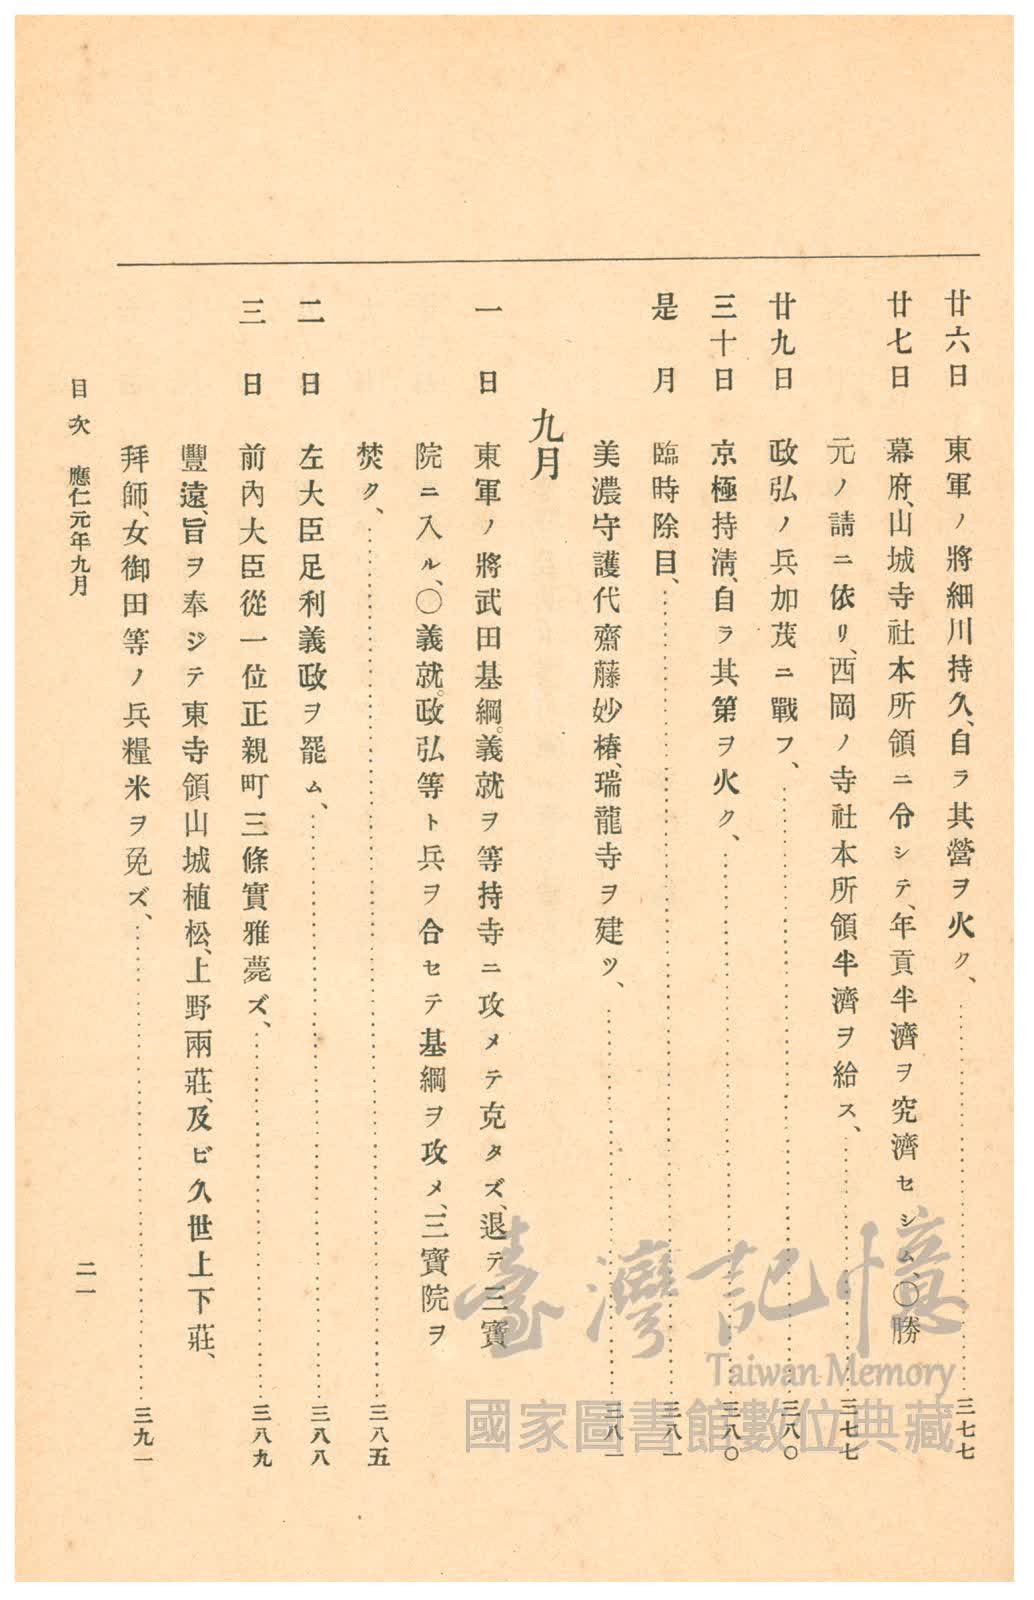 廿六日 東軍ノ將細川持久、自ラ其營ヲ火ク、……三七七
廿七日 幕府、山城寺社本所領ニ令シテ、年貢半濟ヲ究濟セシム、〇勝
元ノ請ニ依リ、西岡ノ寺社本所領半濟ヲ給ス、……三七七
廿九日 政弘ノ兵加茂ニ戰フ、……三八〇
三十日 京極持淸、自ラ其第ヲ火ク、……三八〇
是月 臨時除目、……三八一
美濃守護代齋藤妙椿、瑞龍寺ヲ建ツ、……三八一
九月
一日 東軍ノ將武田基綱。義就ヲ等持寺ニ攻メテ克タズ、退テ三寶
院ニ入ル、〇義就。政弘等ト兵ヲ合セテ基綱ヲ攻メ、三寶院ヲ
焚ク、……三八五
二日 左大臣足利義政ヲ罷ム、……三八八
三日 前內大臣從一位正親町三條實雅薨ズ、……三八九
豐遠、旨ヲ奉ジテ東寺領山城植松、上野兩莊、及ビ久世上下莊、
拜師、女御田等ノ兵糧米ヲ免ズ、……三九一
目次 應仁元年九月 二一
臺灣記憶
Taiwan Memory
國家圖書館數位典藏